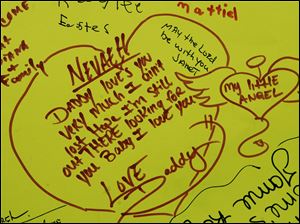 Easter
Mattiel
MAY the Lord
be with you
JANET
Family
NEVAEH
DADDY love's you
very much I dint
lost Hope I'm still
out THERE looking for
you Baby I love you
LOVE Daddy
my little
ANGEL